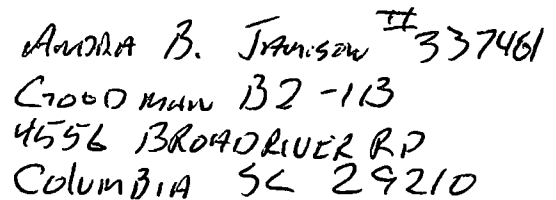 ANDRA B. JAMISON #337461
GOODMAN B2-1B
4556 BROADRIVER RD
COLUMBIA SC 29210